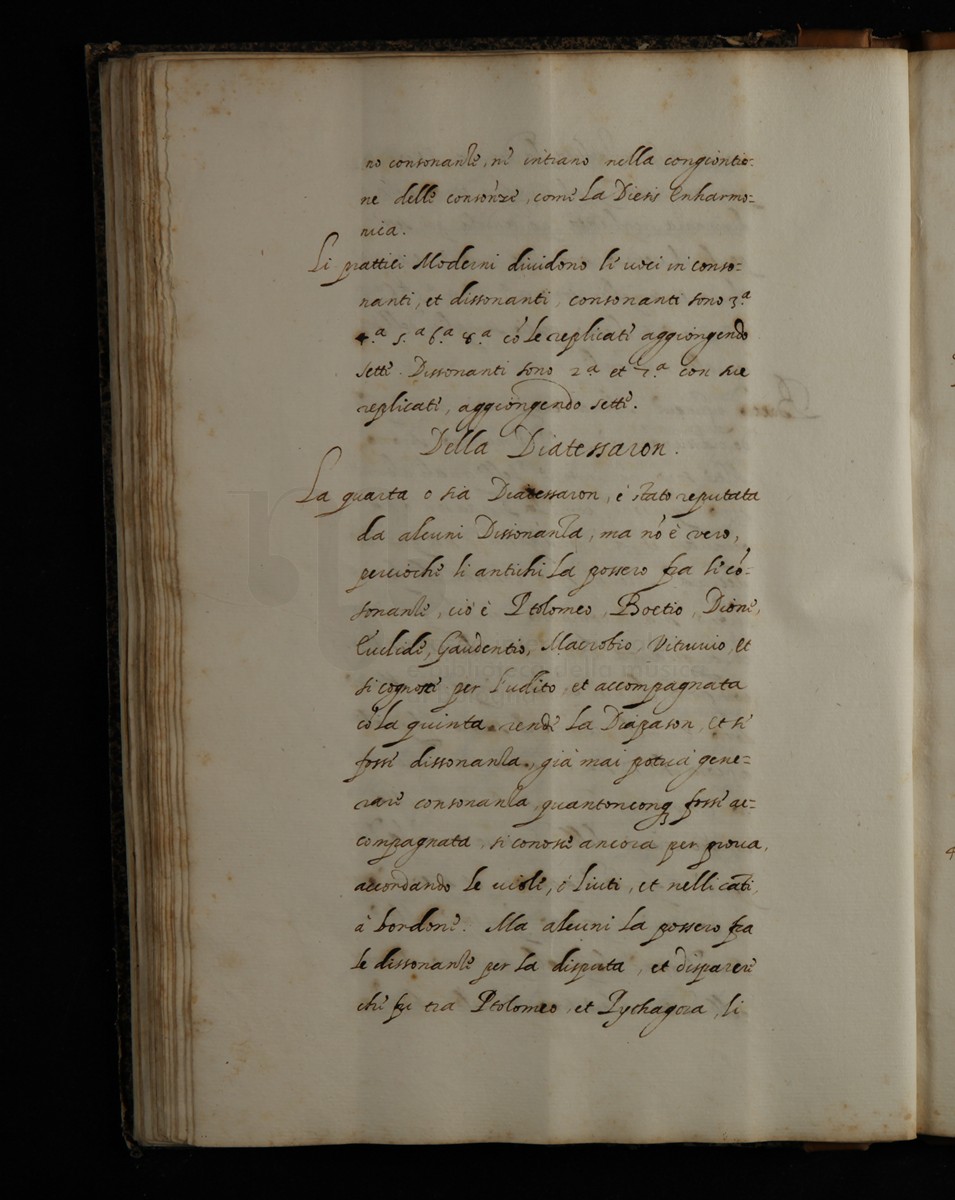 no consonanze, né intrano nella congiontio=
ne delle consonze, come La Diesis Enharmo=
nica.
Li prattici Moderni diuidono li uoci in conso=
nanti, et dissonanti, consonanti sono 3.ª
4.ª 5.ª 6.ª 8.ª cō le replicati aggiongendo
setti. Dissonanti sono 2.ª et 7.ª con sue
replicati, aggiongendo setti.
Della Diatessaron.
La quarta o sia Diatessaron, è stato reputata
da alcuni Dissonanza, ma nō è vero,
percioche li antichi La possero fra le cō=
sonanze, cio è Ptolomeo, Boetio, Dione,
Euclide, Gaudentio, Macrobio, Vitruuio, Et
si cognosce per l'udito, et accompagnata
cō la quinta rende La Diapason, Et si
fosse dissonanza, già mai potria gene=
rare consonanza, quantonconq fosse ac=
compagnata, si conosce ancora per proua,
accordando Le uiole, è Liuti, et nelli cāti
à bordone. Ma alcuni La possero fra
le dissonanze per La disputa, et disparere
che fu tra Ptolomeo, et Pychagora, li